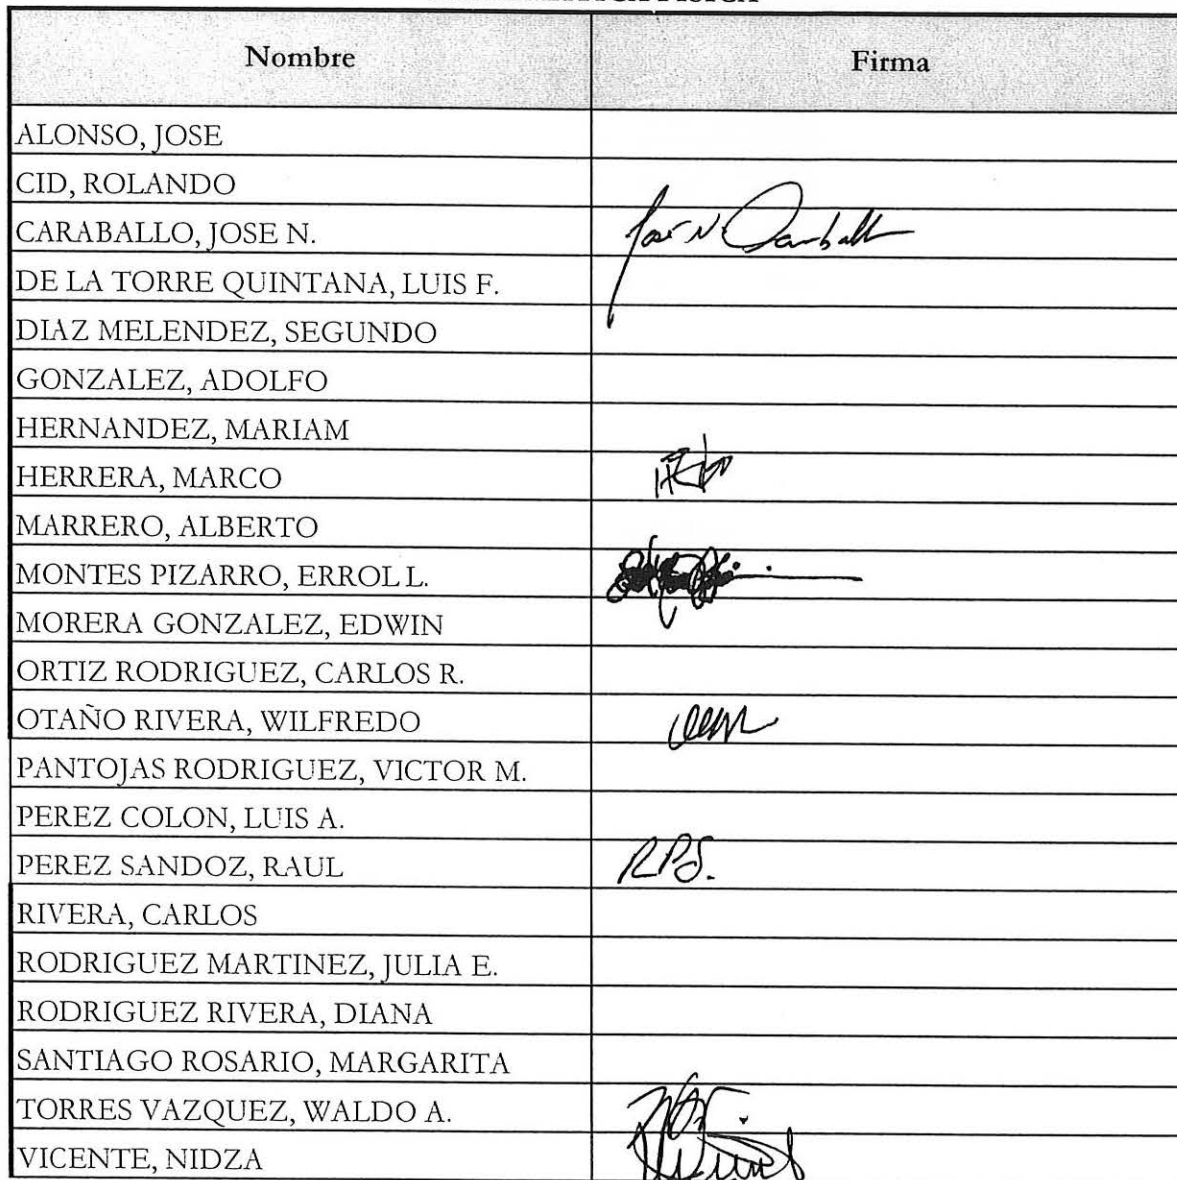 Nombre Firma
ALONSO, JOSE
CID, ROLANDO
CARABALLO, JOSE N. Jose N Caraballo
DE LA TORRE QUINTANA, LUIS F.
DIAZ MELENDEZ, SEGUNDO
GONZALEZ, ADOLFO
HERNANDEZ, MARIAM
HERRERA, MARCO
MARRERO, ALBERTO
MONTES PIZARRO, ERROL L.
MORERA GONZALEZ, EDWIN
ORTIZ RODRIGUEZ, CARLOS R.
OTAÑO RIVERA, WILFREDO
PANTOJAS RODRIGUEZ, VICTOR M.
PEREZ COLON, LUIS A.
PEREZ SANDOZ, RAUL RPS.
RIVERA, CARLOS
RODRIGUEZ MARTINEZ, JULIA E.
RODRIGUEZ RIVERA, DIANA
SANTIAGO ROSARIO, MARGARITA
TORRES VAZQUEZ, WALDO A.
VICENTE, NIDZA